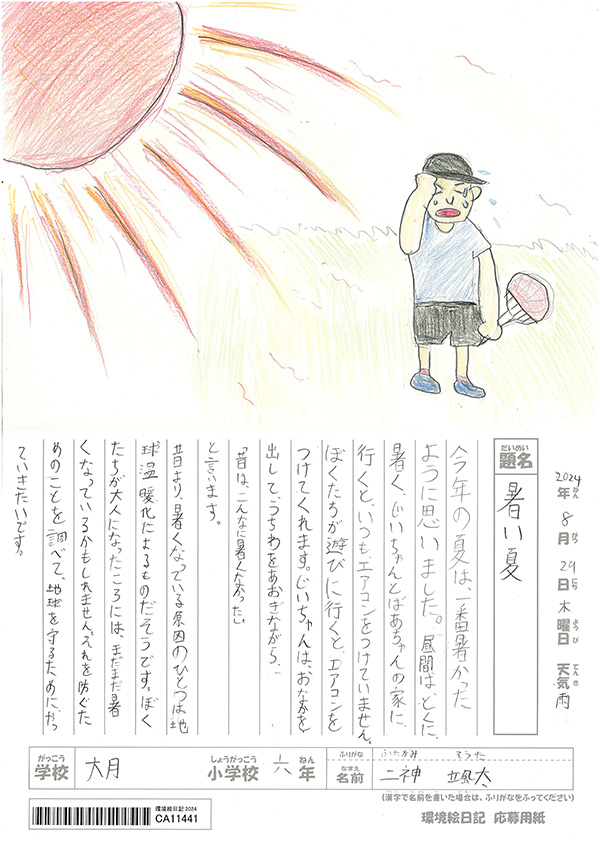 2024年ねん 8月がつ 29日にち 木曜日ようび 天気てんき 雨
題名だいめい 暑い夏
今年の夏は、一番暑かった
ように思いました。昼間は、とくに
暑く、じいちゃんとばあちゃんの家に
行くと、いつも、エアコンをつけていません。
ぼくたちが遊びに行くと、エアコンを
つけてくれます。じいちゃんは、おなかを
出して、うちわをあおぎながら、
「昔は、こんなに暑くなかった」
と言います。
昔より、暑くなっている原因のひとつは、地
球温暖化によるものだそうです。ぼく
たちが大人になったころには、まだまだ暑
くなっているかもしれません。それを防ぐた
めのことを調べて、地球を守るために、やっ
ていきたいです。
がっこう しょうがっこう ねん ふりがな ふたがみ そうた
学校 大月 小学校 六年 なまえ 名前 二神 颯太
(漢字で名前を書いた場合は、ふりがなをふってください)
環境絵日記2024
CA11441
環境絵日記 応募用紙